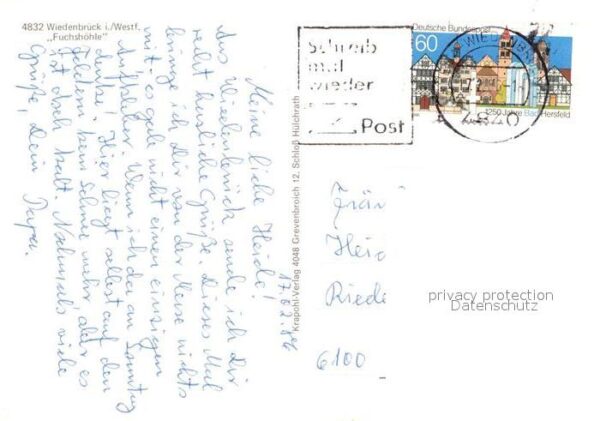 4832 Wiedenbrück i./Westf.
„Fuchshöhle"
17.02.86
Meine liebe Heide!
Aus Wiedenbrück sende ich Dir
recht herzliche Grüße. Dieses Mal
bringe ich Dir von der Reise nichts
mit - es gab nicht einen einzigen
Aufkleber. Wenn ich da am Sonntag
Hier liegt selbst auf den
Feldern kein Schnee mehr, aber es
ist doch kalt. Nochmals viele
Grüße, Dein Papa.
Krapohl-Verlag 4048 Grevenbroich 12, Schloß Hülchrath
Schreib
mal
wieder
Post
Deutsche Bundespost
60
1250 Jahre Bad Hersfeld
WIEDENBRÜ
4840
Fräu
Heid
Riede
6100
privacy protection
Datenschutz